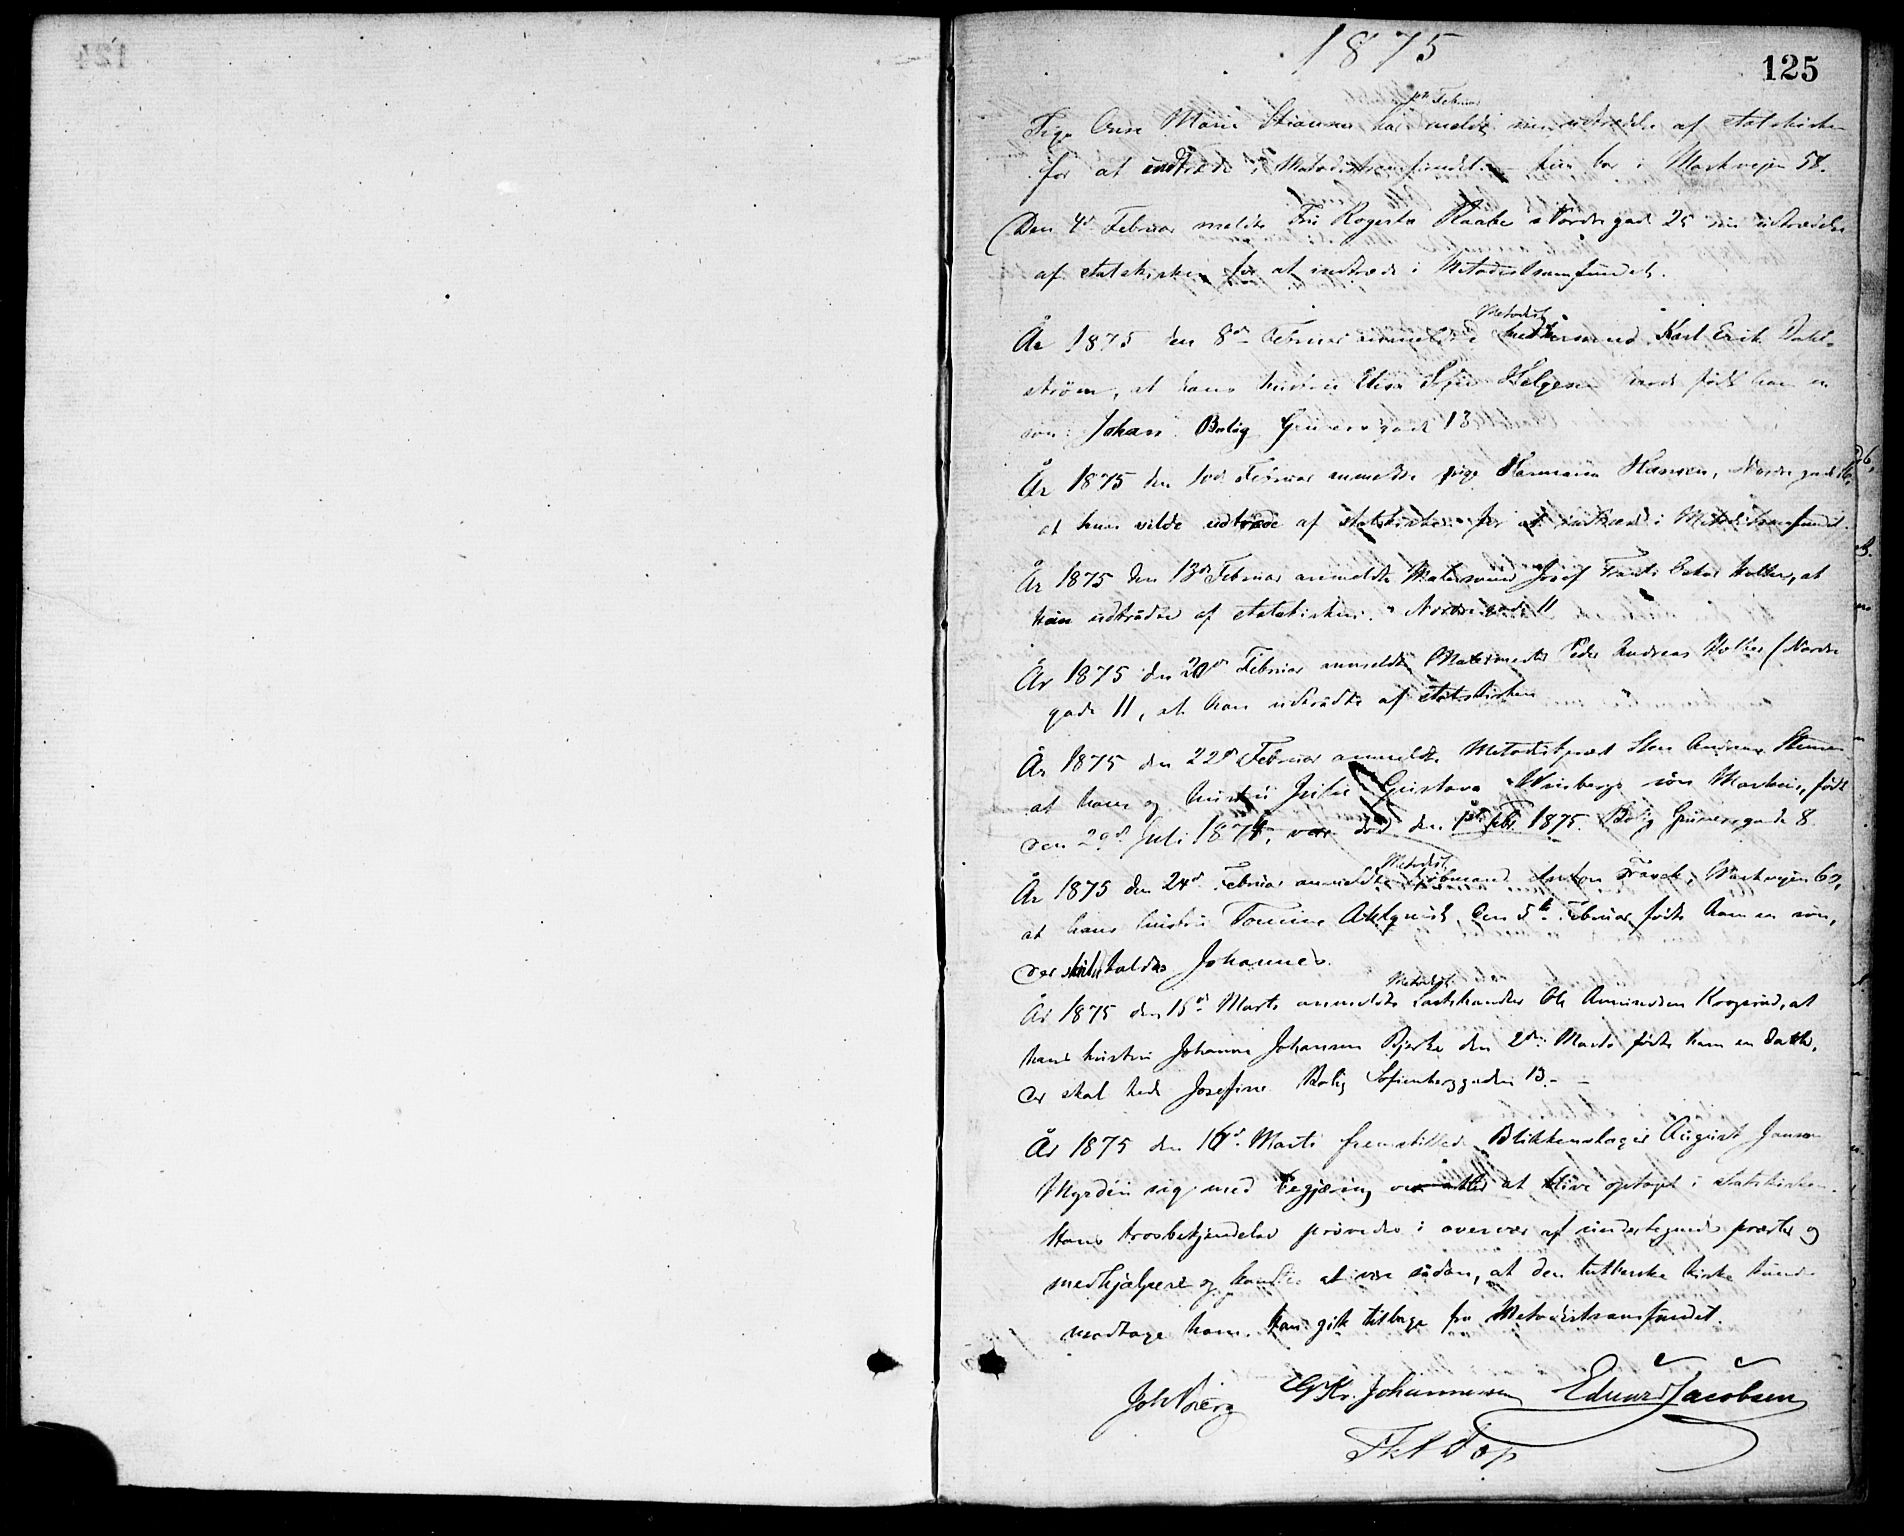 1875
125
Pige Anne Marie har meldt sin udtrædelse af statskirken
for at indtræde i Metodistsamfundet. hun bor i Markvejen 58.
Den 4de Februar meldte Frk Raabe Nordregade 25 sin udtrædelse
af statskirken for at indtræde i Metodistsamfundet.
Metodist
År 1875 den 8de Februar anmeldte Karl Erik Dahl-
strøm, at hans hustru Elise Helgesen havde født ham en
søn: Johan. Bolig Grünersgade 13
År 1875 den 10de Februar anmeldte pige Hansen, Nordregade 16,
at hun vilde udtræde af statskirken for at indtræde i Metodistsamfundet.
År 1875 den 13de Februar anmeldte Malersvend Josef Frants Oskar Holter, at
han udtrådte af statskirken. Nordregade 11
År 1875 den 20de Februar anmeldte Malermester Peder Andreas Holter (Nordre
gade 11, at han udtrådte af statskirken
År 1875 den 22de Februar anmeldte Metodistpræst Sten Andreas
at hans og hustru Julie Gustava Winsbergs søn født
den 29de Juli 1874, var død den 1ste Febr 1875. Bolig Grünersgade 8
Metodist
År 1875 den 24de Februar anmeldte Anton Franck, Markvejen
at hans hustru den 5te Februar fødte ham en søn,
der skulde kaldes Johannes.
Metodist
År 1875 den 15de Marts anmeldte Ole Amundsen at
hans hustru Johanne Johansen Bjerke den 2den Marts fødte ham en datter,
der skal hede Josefine. Bolig Sofienberggaden 13.
År 1875 den 16de Marts fremstillede Blikkenslager August Janson
sig med begjæring om atter at blive optaget i statskirken.
Hans trosbekjendelse prøvedes i overvær af undertegnede præster og
medhjælpere og at være sådan, at den lutherske kirke kunde
modtage ham. Han gik tilbage fra Metodistsamfundet.
Kr. Johannessen Eduard Jacobsen